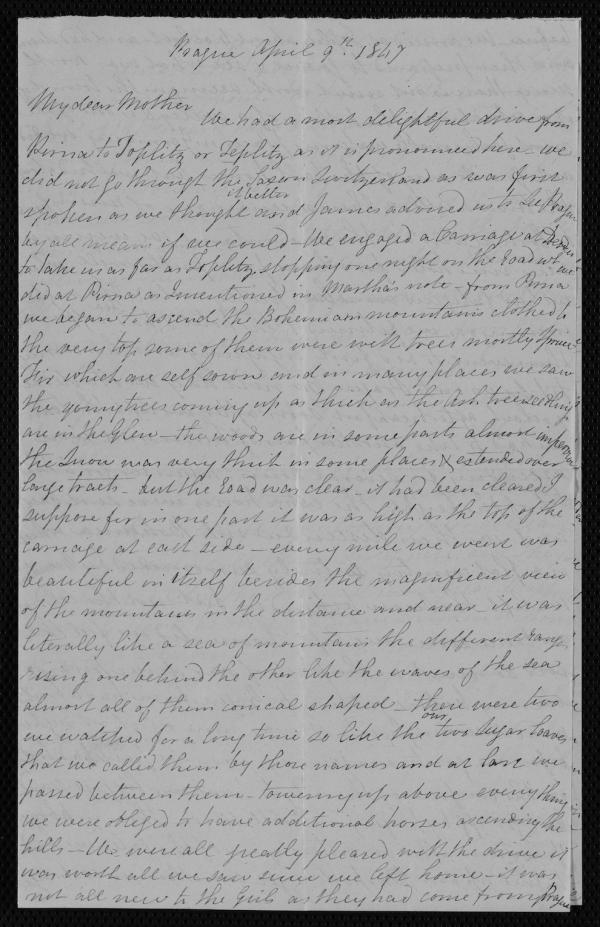 Prague April 9th 1847
My dear Mother
We had a most delightful drive from
Pirna to Toplitz or Teplitz as it is pronounced here - we
did not go through the Saxon Switzerland as was first
spoken as we thought it better and James advised us to See Prague
by all means if we could - We engaged a Carriage at
to take us as far as Toplitz, stopping one night on the road wh we
did at Pirna as I mentioned in Martha's note - from Pirna
we began to ascend the Bohemian mountains clothed to
the very top some of them were with trees mostly Spruce
Fir which are self sown and in many places we saw
the young trees coming up as thick as the Ash trees seedlings
are in the Glen - the woods are in some parts almost
the Snow was very thick in some places & extended over
large tracts - but the road was clear - it had been cleared I
suppose for in one part it was as high as the top of the
carriage at each side - every mile we went was
beautiful in itself besides the magnificent view
of the mountains in the distance and near - it was
literally like a sea of mountains the different ranges
rising one behind the other like the waves of the sea
almost all of them conical shaped - there were two
we watched for a long time so like the our two Sugar loaves
that we called them by those names and at last we
passed between them - towering up above everything
we were obliged to have additional horses ascending the
hills - We were all greatly pleased with the drive it
was worth all we saw since we left home - it was
not all new to the Girls as they had come from Prague